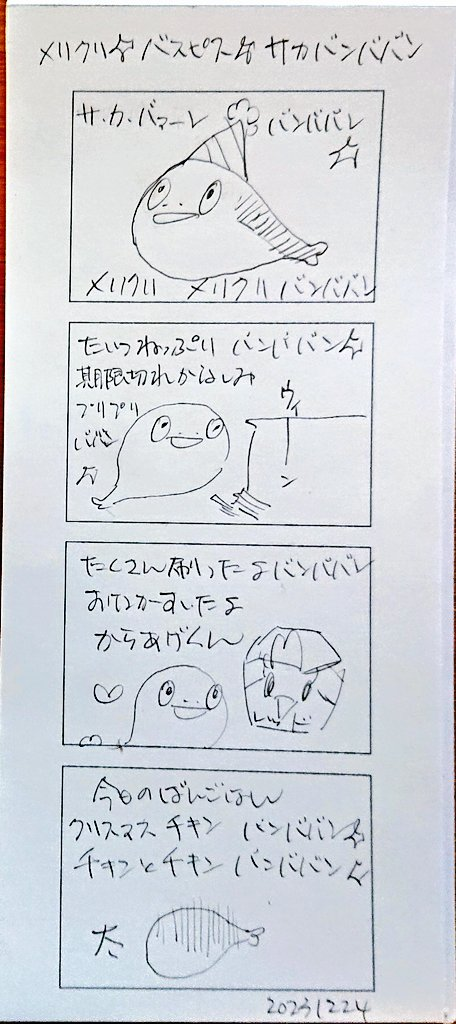 メリクリ☆バスピス☆サカバンババン
サ・カ・バァーン
バンババン
☆
メリクリ メリクリ バンババン
バンババン☆
期限切れかなしみ
プリプリ
ババン
☆
ウィ
ー
ン
たくさん刷ったよバンババン
おけつかーすいたよ
からあげくん
レッド
今日のばんごはん
クリスマス チキン バンババン☆
チキンとチキン バンババン☆
大
20231224